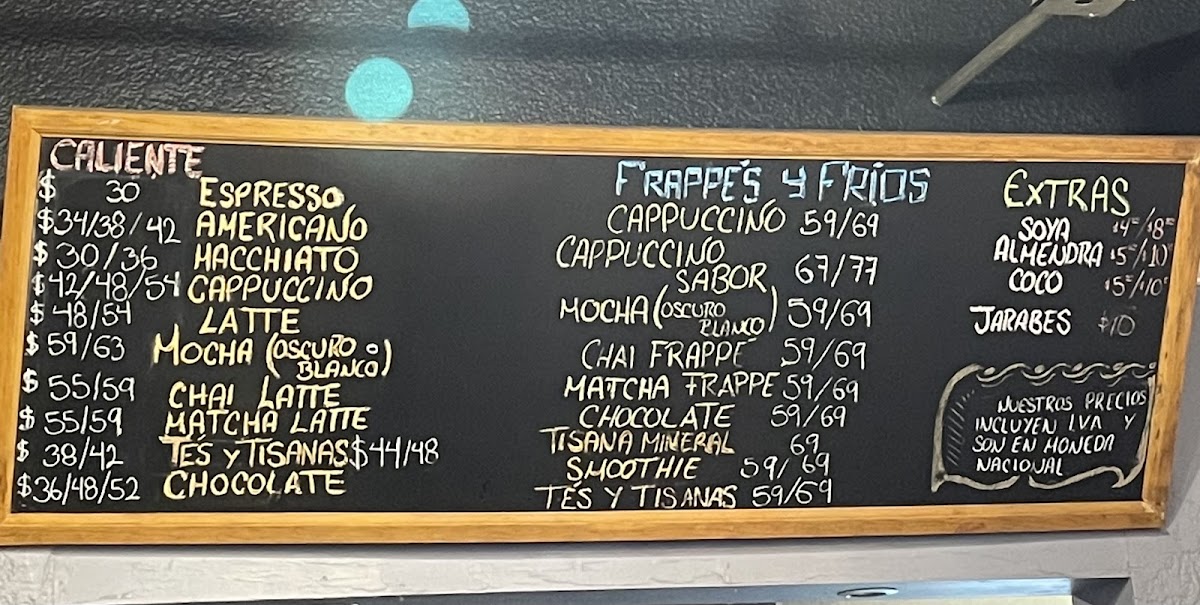 CALIENTE
$ 30 ESPRESSO
$34/38/42 AMERICANO
$30/36 MACCHIATO
$42/48/54 CAPPUCCINO
$48/54 LATTE
$59/63 MOCHA (OSCURO O
BLANCO)
$55/59 CHAI LATTE
$55/59 MATCHA LATTE
$38/42 TÉS Y TISANAS $44/48
$36/48/52 CHOCOLATE
FRAPPÉS Y FRÍOS
CAPPUCCINO 59/69
CAPPUCCINO
SABOR 67/77
MOCHA (OSCURO
BLANCO) 59/69
CHAI FRAPPÉ 59/69
MATCHA FRAPPE 59/69
CHOCOLATE 59/69
TISANA MINERAL 69
SMOOTHIE 59/69
TÉS Y TISANAS 59/69
EXTRAS
SOYA $4/$8
ALMENDRA $5/$10
COCO $5/$10
JARABES $10
NUESTROS PRECIOS
INCLUYEN I.V.A Y
SON EN MONEDA
NACIONAL